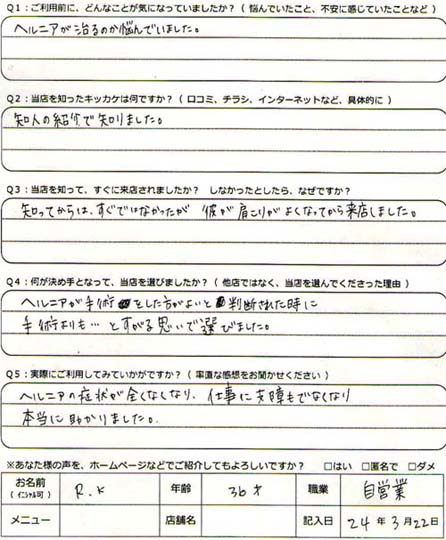 Q1：ご利用前に、どんなことが気になっていましたか？（ 悩んでいたこと、不安に感じていたことなど ）
ヘルニアが治るのか悩んでいました。
Q2：当店を知ったキッカケは何ですか？（ 口コミ、チラシ、インターネットなど、具体的に ）
知人の紹介で知りました。
Q3：当店を知って、すぐに来店されましたか？　しなかったとしたら、なぜですか？
知ってからは、すぐではなかったが 彼が肩こりがよくなってから来店しました。
Q4：何が決め手となって、当店を選びましたか？（ 他店ではなく、当店を選んでくださった理由 ）
ヘルニアが手術をした方がよいと判断された時に
手術よりも… とすがる思いで選びました。
Q5：実際にご利用してみていかがですか？（ 率直な感想をお聞かせください ）
ヘルニアの症状が全くなくなり、仕事に支障もでなくなり
本当に助かりました。
※あなた様の声を、ホームページなどでご紹介してもよろしいですか？　□はい　□匿名で　□ダメ
お名前 R.K 年齢 36才 職業 自営業
（ イニシャル可 ）
メニュー 店舗名 記入日 24年3月22日